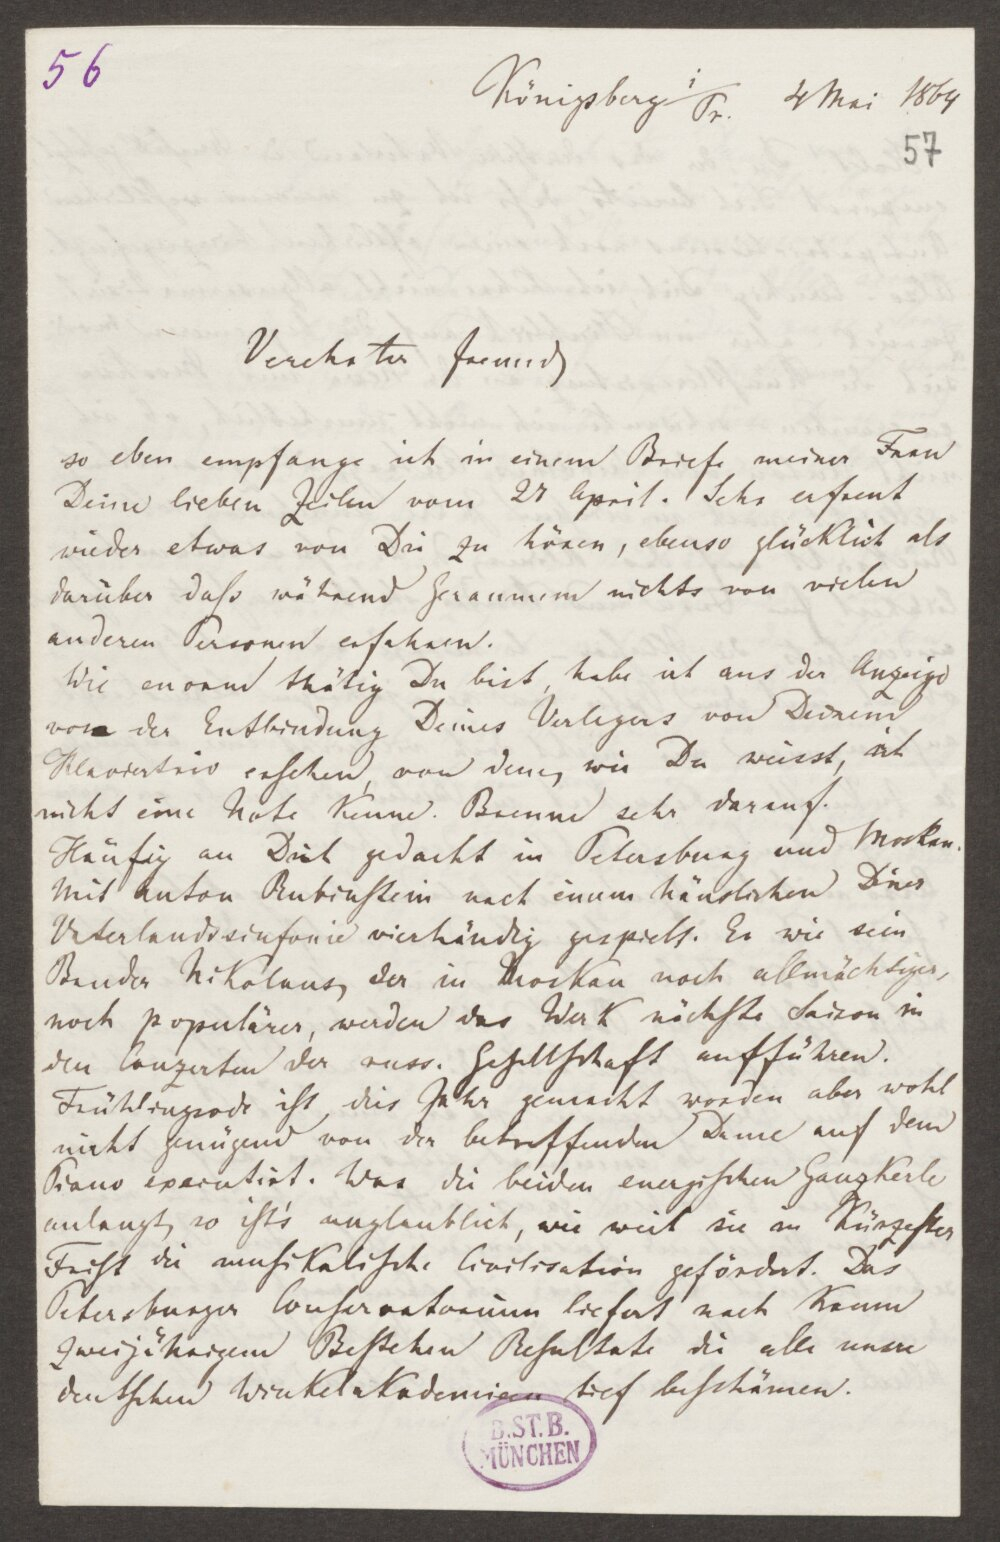 56
Königsberg i/Pr. 4 Mai 1864
57
Verehrter Freund
so eben empfange ich in einem Briefe meiner Frau
Deine lieben Zeilen vom 27 April. Sehr erfreut
wieder etwas von Dir zu hören, ebenso glücklich als
darüber daß während Geraumem nichts von vielen
anderen Personen erfahren.
Wie enorm thätig Du bist, habe ich aus der Anzeige
von der Entbindung Deines Verlegers von Deinem
Klaviertrio ersehen, von dem, wie Du weisst, ich
nicht eine Note kenne. Brenne sehr darauf.
Häufig an Dich gedacht in Petersburg und Moskau.
Mit Anton Rubinstein nach einem häuslichen Diner
Vaterlandssinfonie vierhändig gespielt. Er wie sein
Bruder Nikolaus, der in Moskau noch allmächtiger,
noch populärer, werden das Werk nächste Saison in
den Conzerten der russ. Gesellschaft aufführen.
Frühlingsode ist dies Jahr gemacht worden aber wohl
nicht genügend von der betreffenden Dame auf dem
Piano executirt. Was die beiden energischen Ganzkerle
anlangt, so ist's unglaublich, wie weit sie in kürzester
Frist die musikalische Civilisation gefördert. Das
Petersburger Conservatorium liefert nach kaum
zweijährigem Bestehen Resultate die alle unsre
deutschen Winkelakademieen tief beschämen.
B.ST.B.
MÜNCHEN